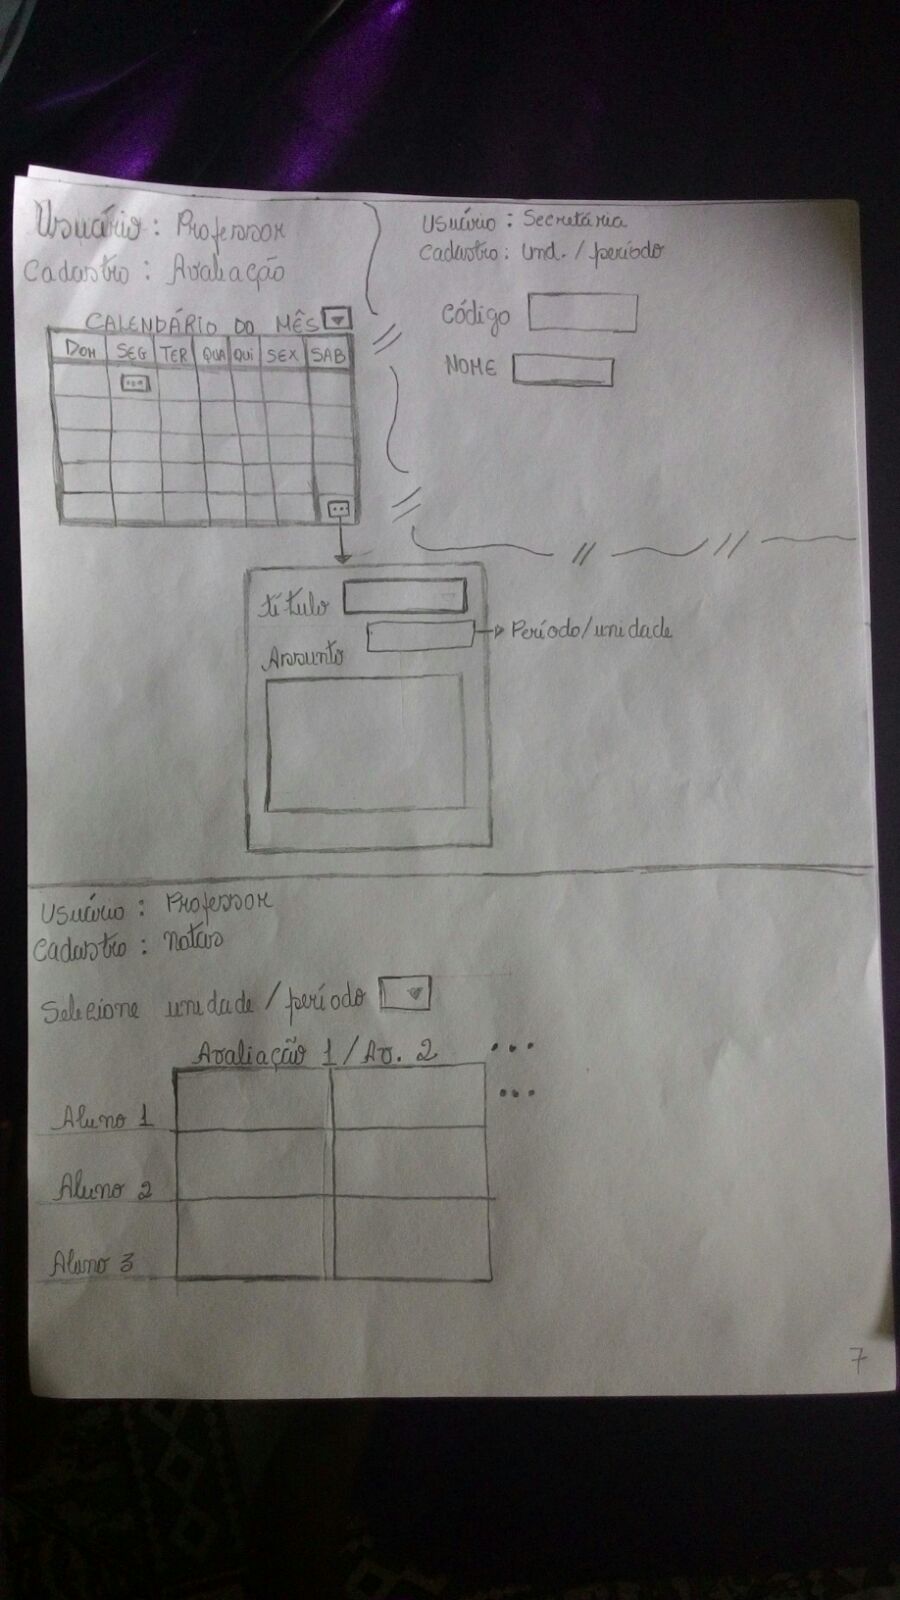 Usuário : Professor
Cadastro : Avaliação
CALENDÁRIO DO MÊS
DOM SEG TER QUA QUI SEX SAB
...
...
título
Período/unidade
Assunto
Usuário : Secretária
Cadastro : Und. / período
Código
NOME
Usuário : Professor
Cadastro : notas
Selecione unidade / período
Avaliação 1 / Av. 2 ...
...
Aluno 1
Aluno 2
Aluno 3
7